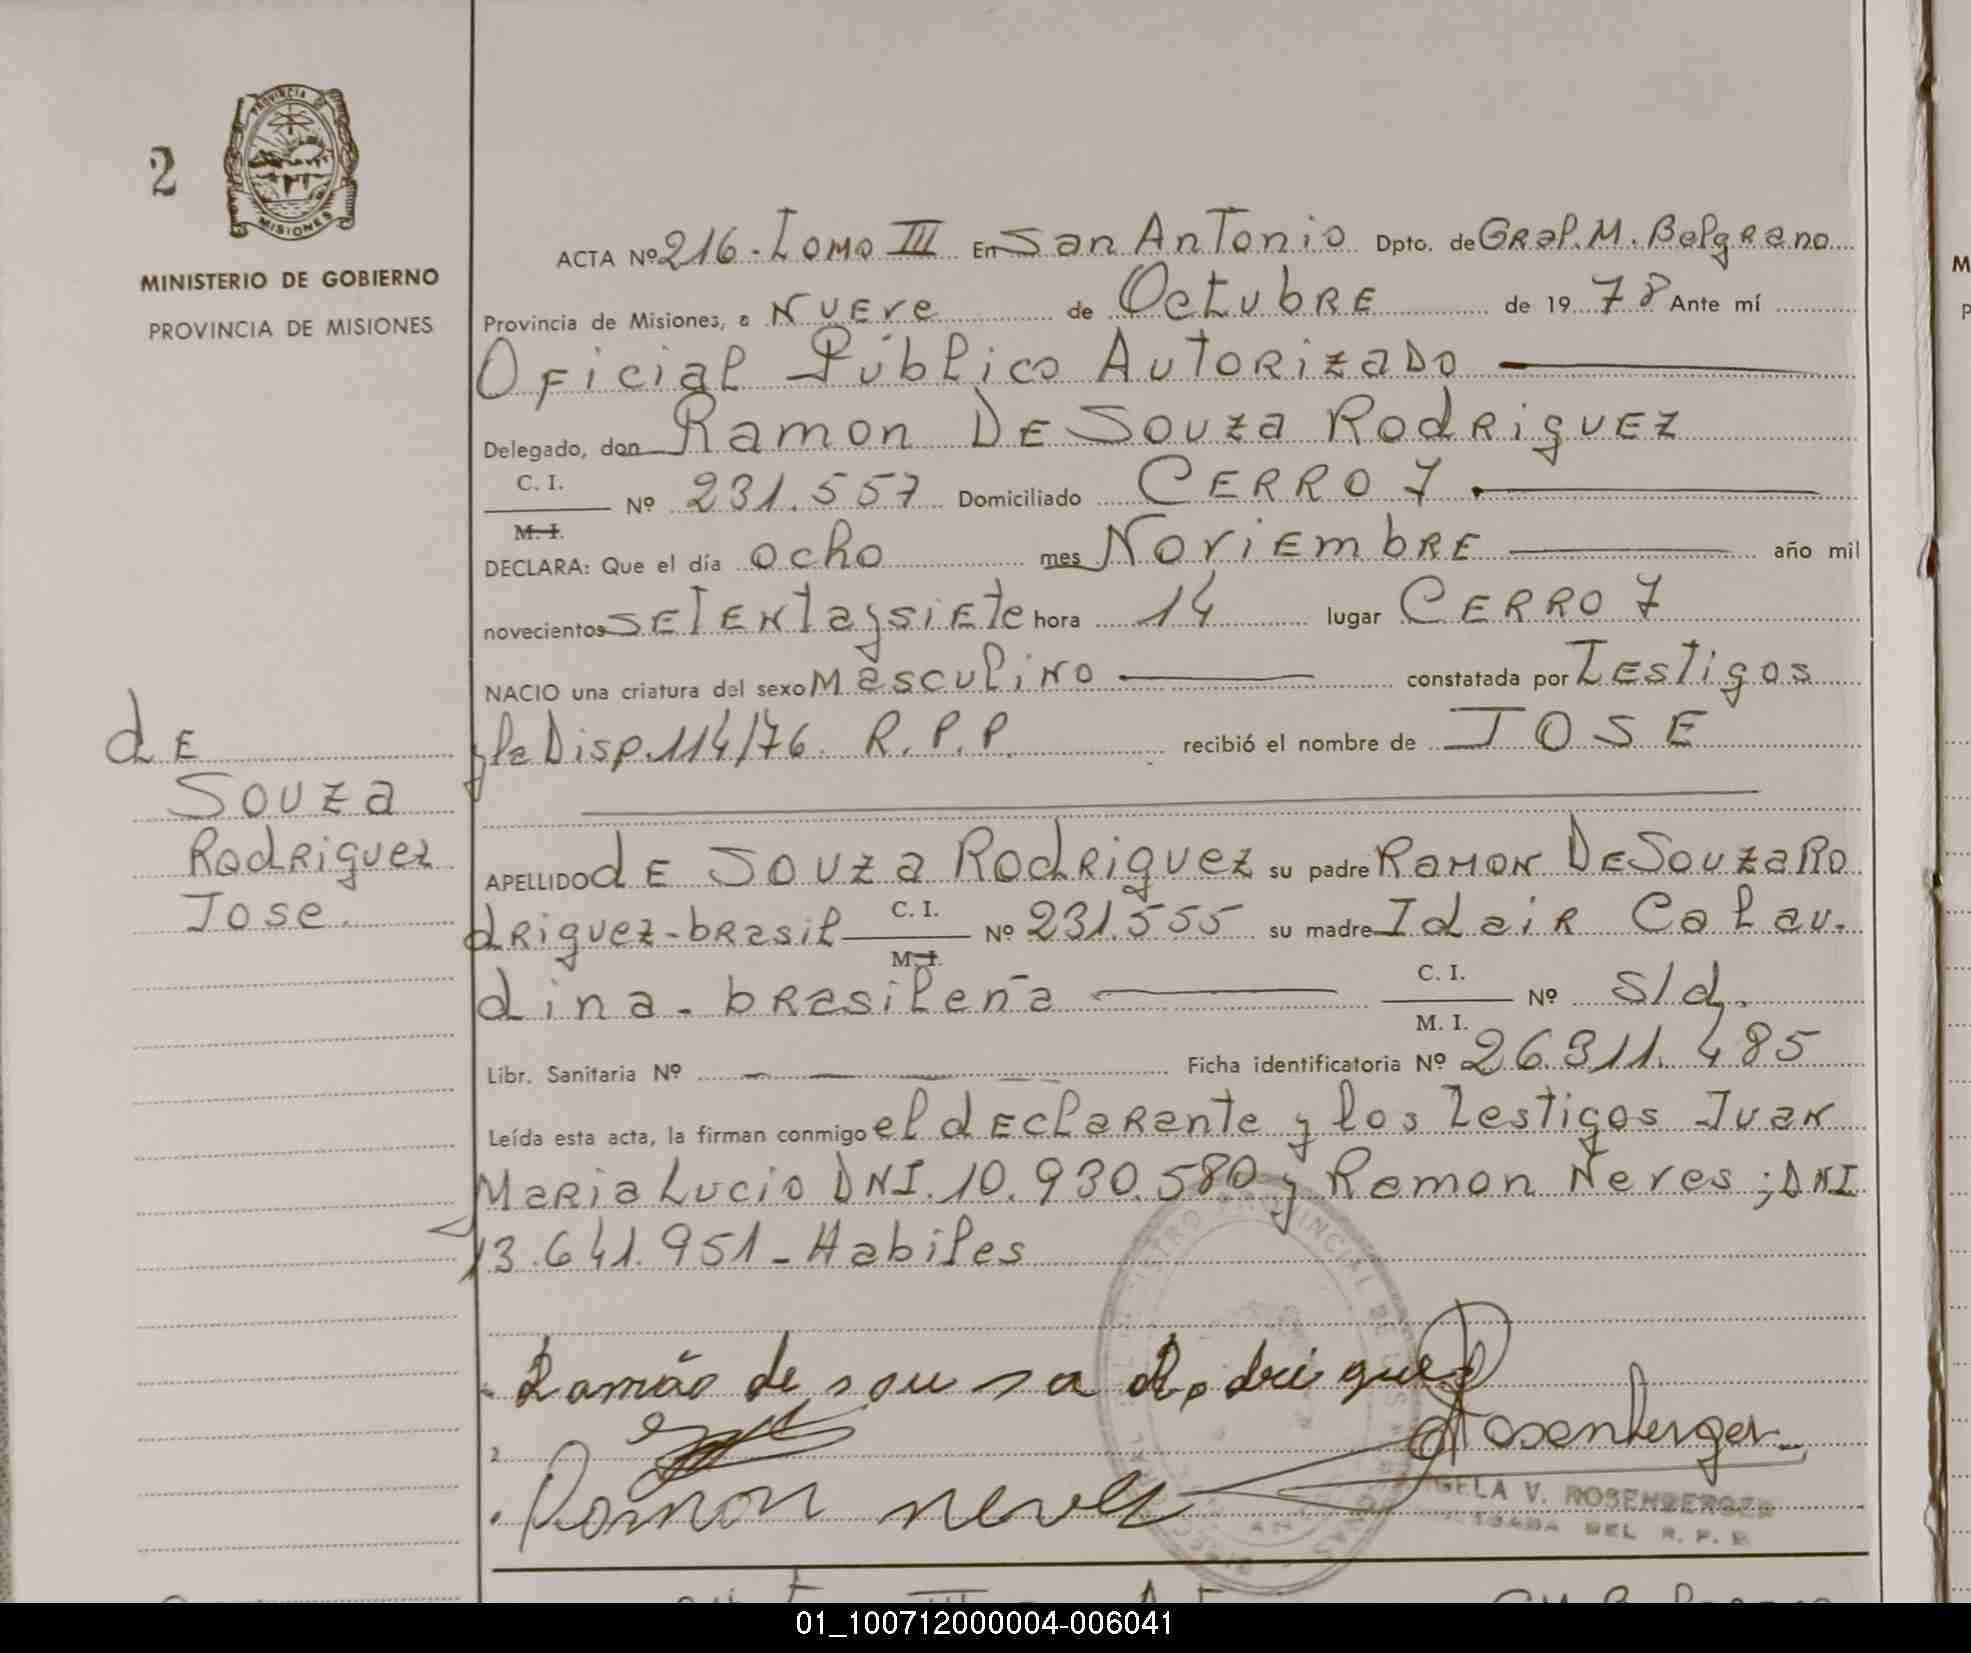 2
PROVINCIA DE
MISIONES
MINISTERIO DE GOBIERNO
PROVINCIA DE MISIONES
ACTA Nº 216 - Tomo III En San Antonio Dpto. de Gral. M. Belgrano
Provincia de Misiones, a Nueve de Octubre de 1978 Ante mí
Oficial Público Autorizado
Delegado, don Ramon De Souza Rodriguez
C. I.
M. I.
Nº 231.557 Domiciliado Cerro 7.
DECLARA: Que el día ocho mes Noviembre año mil
novecientos setenta y siete hora 14 lugar Cerro 7
NACIO una criatura del sexo Masculino constatada por Testigos
y la Disp. 114/76 R.P.P. recibió el nombre de JOSE
de
Souza
Rodriguez
Jose.
APELLIDO de Souza Rodriguez su padre Ramon De Souza Ro
driguez - brasil C. I.
M. I.
Nº 231.555 su madre Idair Calau-
dina - brasileña C. I.
M. I.
Nº s/d.
Libr. Sanitaria Nº Ficha identificatoria Nº 26.311.485
Leída esta acta, la firman conmigo el declarante y los testigos Juan
Maria Lucio DNI. 10.930.580 y Ramon Neves; DNI
13.641.951 - Habiles
Ramão de sousa Rodriguez
2.
Rosenberger
Ramon neves
ANGELA V. ROSENBERGER
DEL R. P. P.
01_100712000004-006041